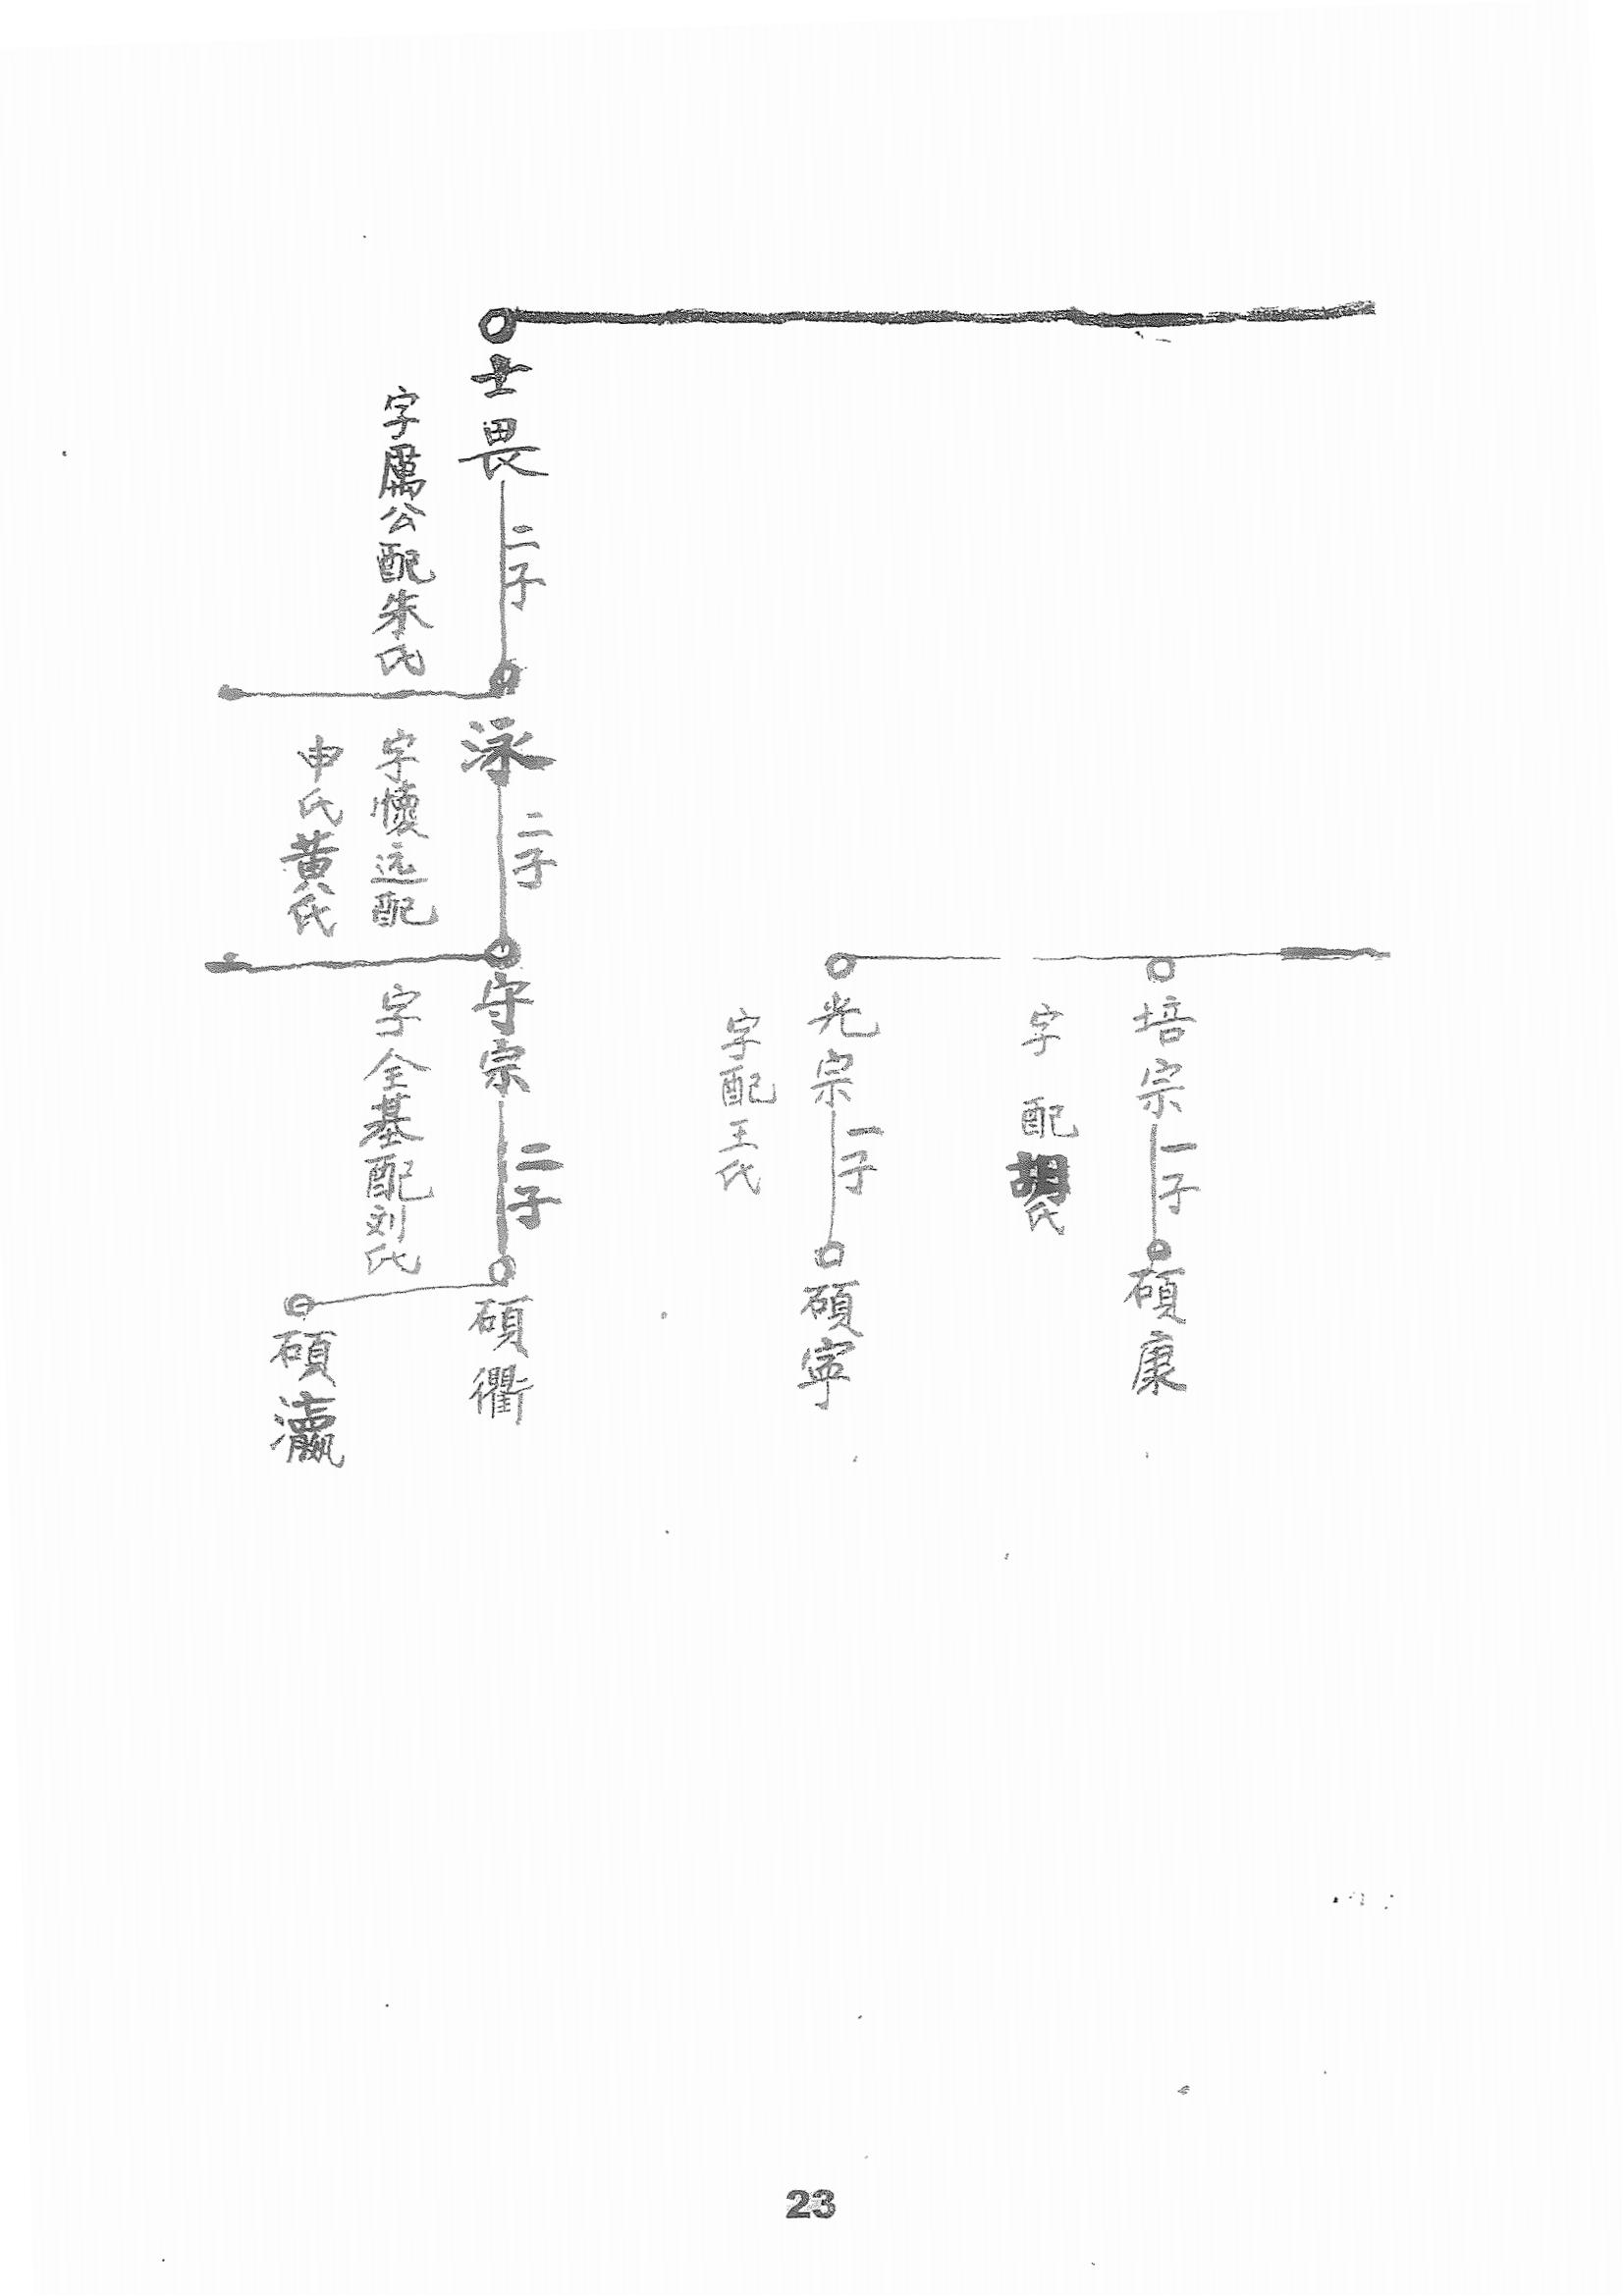 培宗
一子
碩康
字 配胡氏
光宗
一子
碩寧
字配王氏
士畏
二子
字厲公配朱氏
泳
二子
字懷远配
申氏黄氏
守宗
二子
字全基配刘氏
碩衢
碩瀛
23